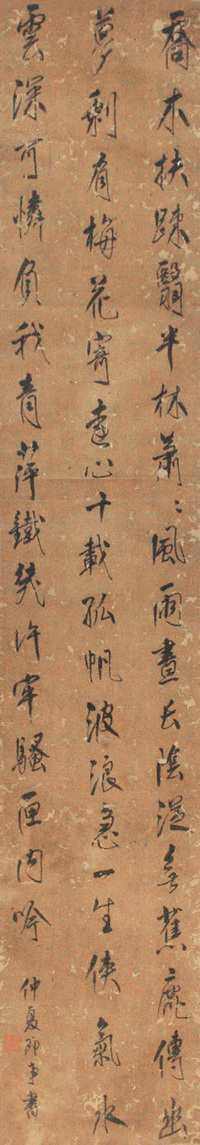 喬木扶踈翳半林蕭〻風雨晝長陰從無蕉鹿傳幽
夢剩有梅花寄遠心十載孤帆波浪急一生俠氣水
雲深可憐負我青萍鐵幾許牢騷匣內吟
仲夏即事書